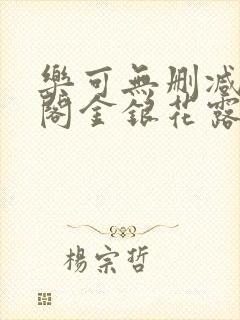 樂可無刪減
閣金銀花露
楊宗哲